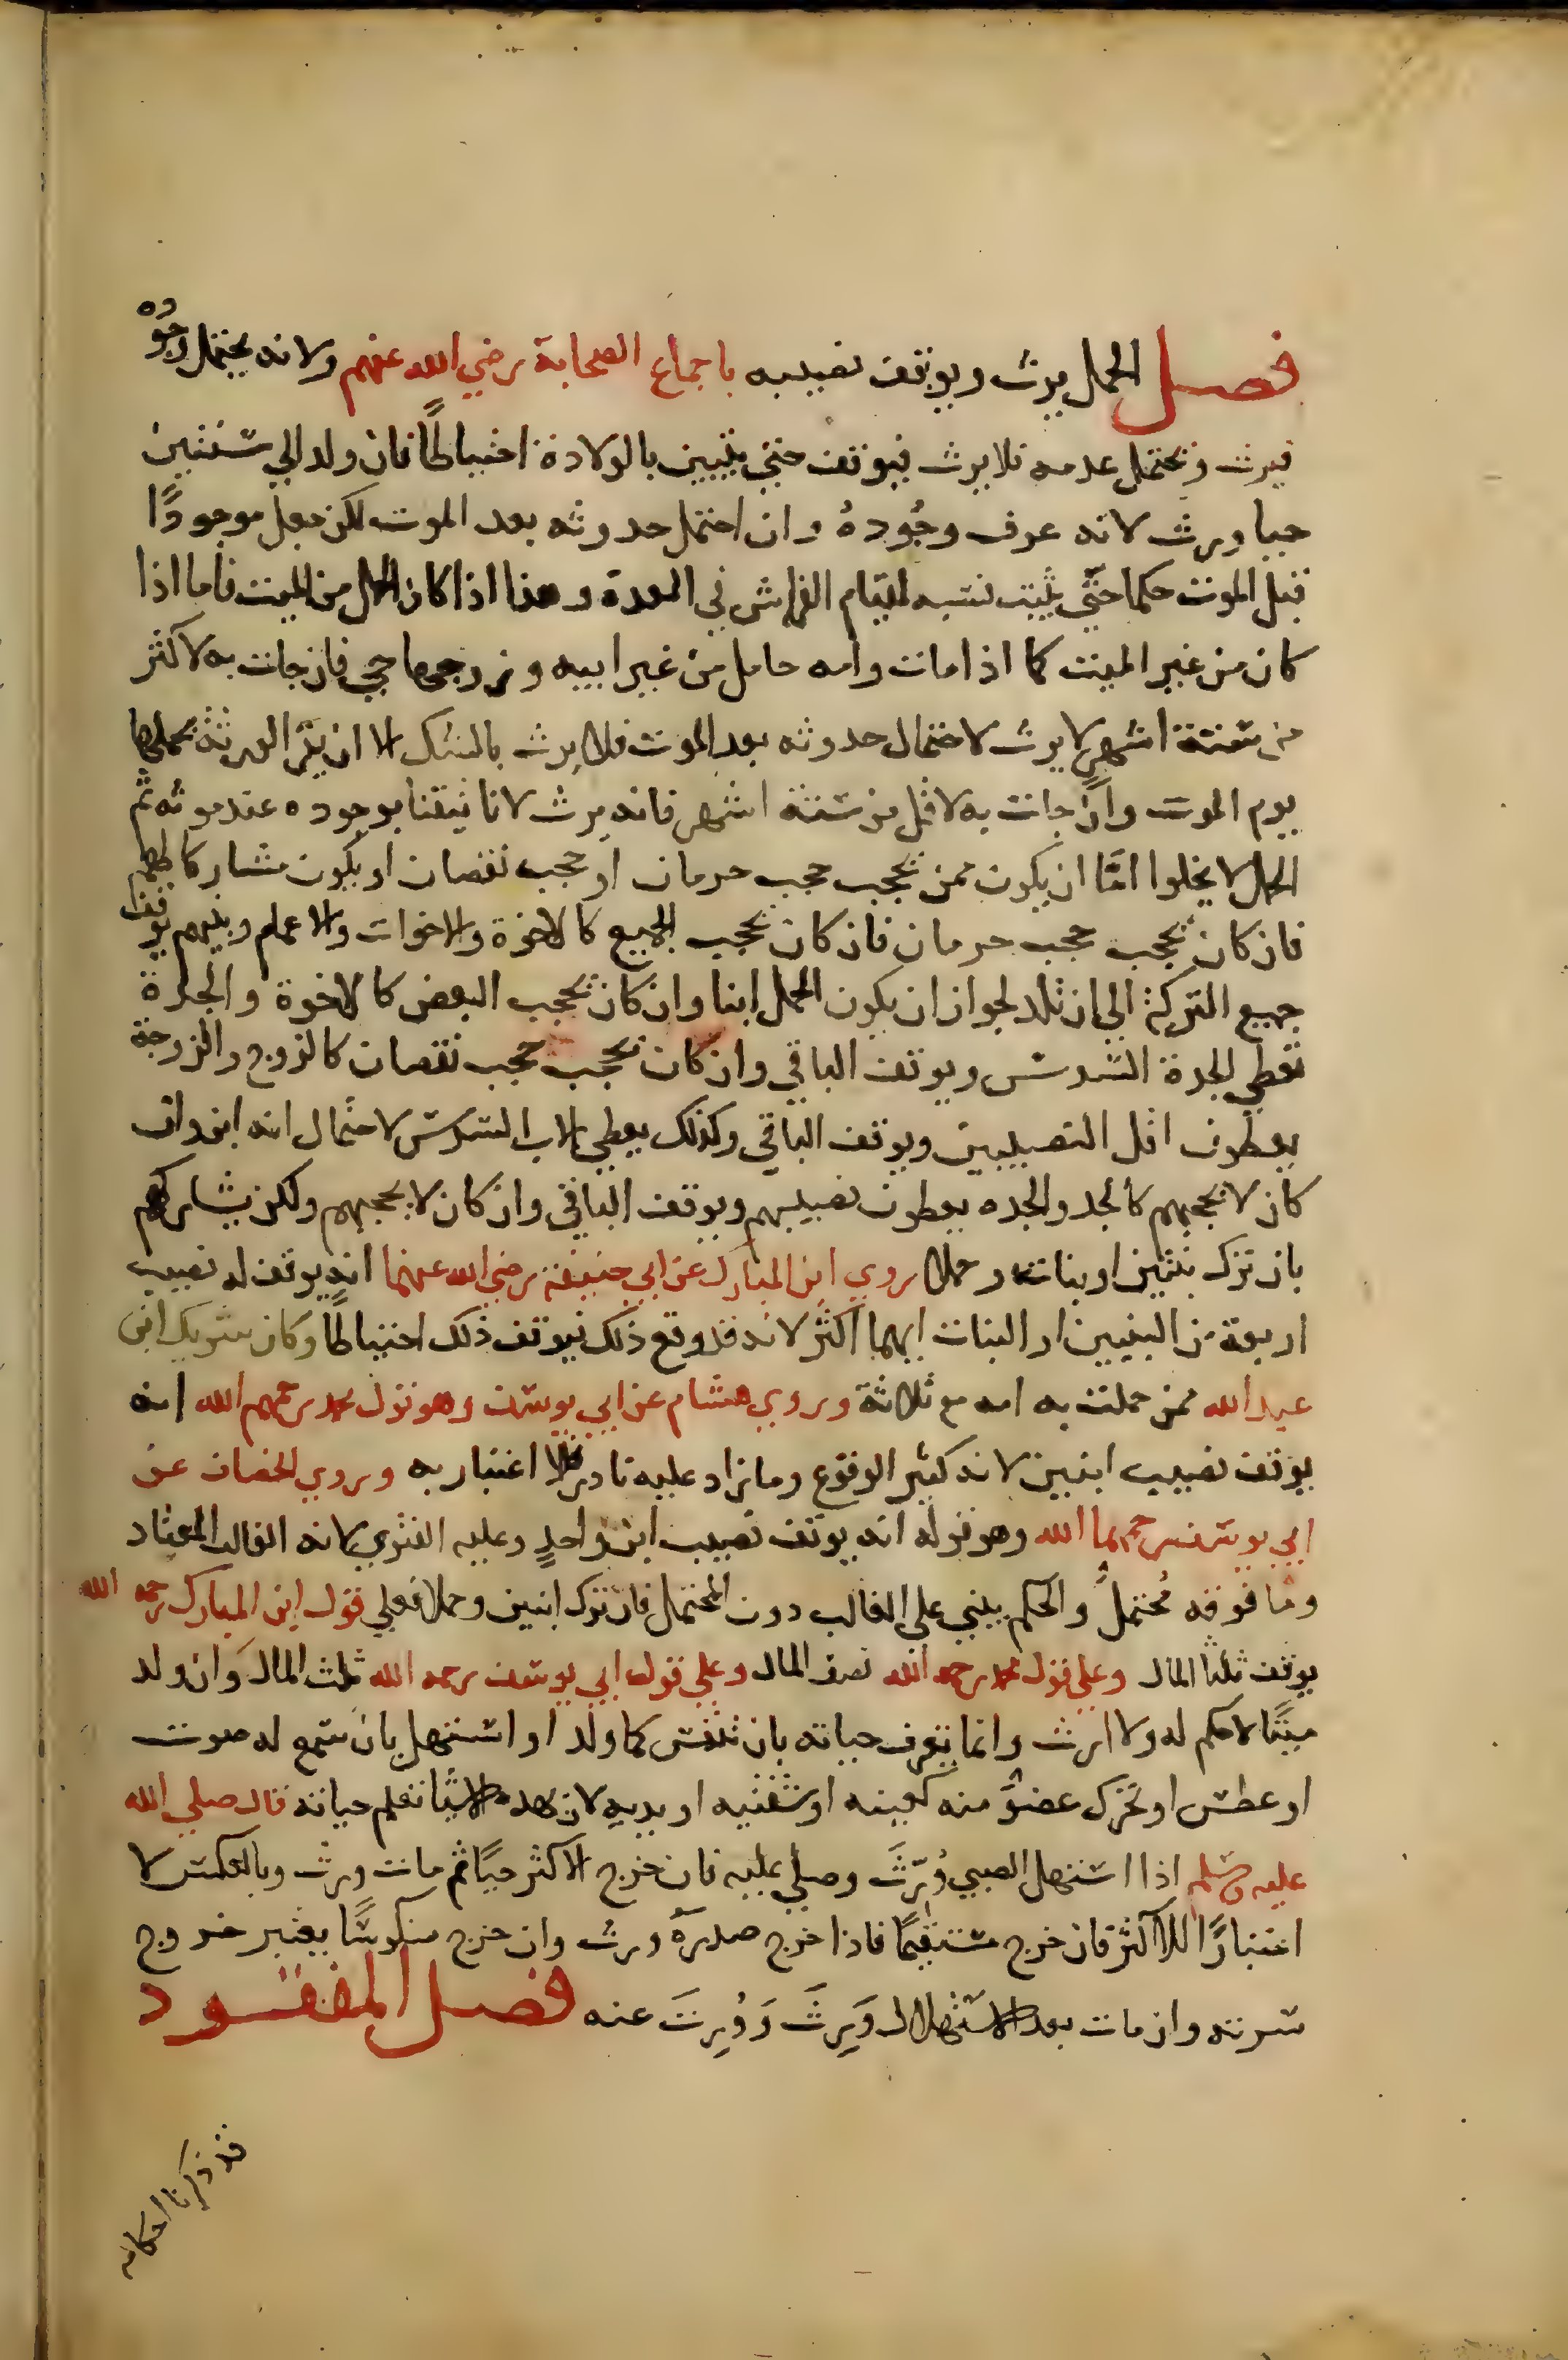 فصل الحمل يرث ويوقف نصيبه باجماع الصحابة رضي الله عنهم ولانه يحتمل وجوده
فيرث ويحتمل عدمه فلا يرث فيوقف حتي يتبين بالولادة احتياطًا فان ولد الي سنتين
حيا ورث لانه عرف وجُودهُ وان احتمل حدوثه بعد الموت لكن جعل موجودًا
قبل الموت حكما حتّي يثبت نسبه لقيام الفراش في العدة وهذا اذا كان الحمل من الميت فاما اذا
كان من غير الميت كما اذا مات وامه حامل من غير ابيه وزوجها حي فان جات به لاكثر
من ستة اشهرٍ لا يرث لاحتمال حدوثه بعد الموت فلا يرث بالشك الا ان يقر الورثة بحملها
يوم الموت وان جات به لاقل من ستة اشهر فانه يرث لانا تيقنا بوجوده عند موته ثم
الحمل لا يخلوا امّا ان يكون ممن يحجب حجب حرمان او حجب نقصان او يكون مشاركا لهم
فان كان يحجب حجب حرمان فان كان يحجب الجميع كالاخوة والاخوات والاعمام وبنيهم يوقف
جميع التركة الي ان تلد لجواز ان يكون الحمل ابنا وان كان يحجب البعض كالاخوة والجدة
تعطي الجدة السدس ويوقف الباقي وان كان يحجب حجب نقصان كالزوج والزوجة
يعطون اقل النصيبين ويوقف الباقي وكذلك يعطي الاب السدس لاحتمال انه ابن وان
كان لا يحجبهم كالجد والجده يعطون نصيبهم ويوقف الباقي وان كان لا يحجبهم ولكن يشاركهم
بان ترك بنتين او بنات وحملا روي ابن المبارك عن ابي حنيفة رضي الله عنهما انه يوقف له نصيب
اربعة من البنيين او البنات ايهما اكثر لانه قد وقع ذلك فيوقف ذلك احتياطًا وكان شريك ابن
عبد الله ممن حملت به امه مع ثلاثة وروي هشام عن ابي يوسف وهو قول محمد رحمهم الله انه
يوقف نصيب ابنين لانه كثير الوقوع وما زاد عليه نادر فلا اعتبار به وروي الخصاف عن
ابي يوسف رحمهما الله وهو قوله انه يوقف نصيب ابن واحدٍ وعليه الفتوي لانه الغالب المعتاد
وما فوقه مُحتملٌ والحكم يبني علي الغالب دون المحتمل فان ترك ابنين وحملا فعلي قول ابن المبارك رحمه الله
يوقف ثلثا المال وعلي قول محمد رحمه الله نصف المال وعلي قول ابي يوسف رحمه الله ثلث المال وان ولد
ميتًا لا حكم له ولا ارث وانما يعرف حياته بان تنفس كما ولد او استهل بان سمع له صوت
او عطس او تحرك عضوٌ منه كعينه او شفتيه او يديه لان بهده الاشيا تعلم حياته قال صلي الله
عليه وسلم اذا استهل الصبي وُرّثَ وصلي عليه فان خرج الاكثر حيًا ثم مات ورث وبالعكس لا
اعتبارًا للاكثر فان خرج مستقيمًا فاذا خرج صدرهُ ورث وان خرج منكوسًا يعتبر خروج
سرته وان مات بعد الاستهلال وَرِثَ وَوُرِثَ عنه فصل المفقود
قد ذكرنا احكامه